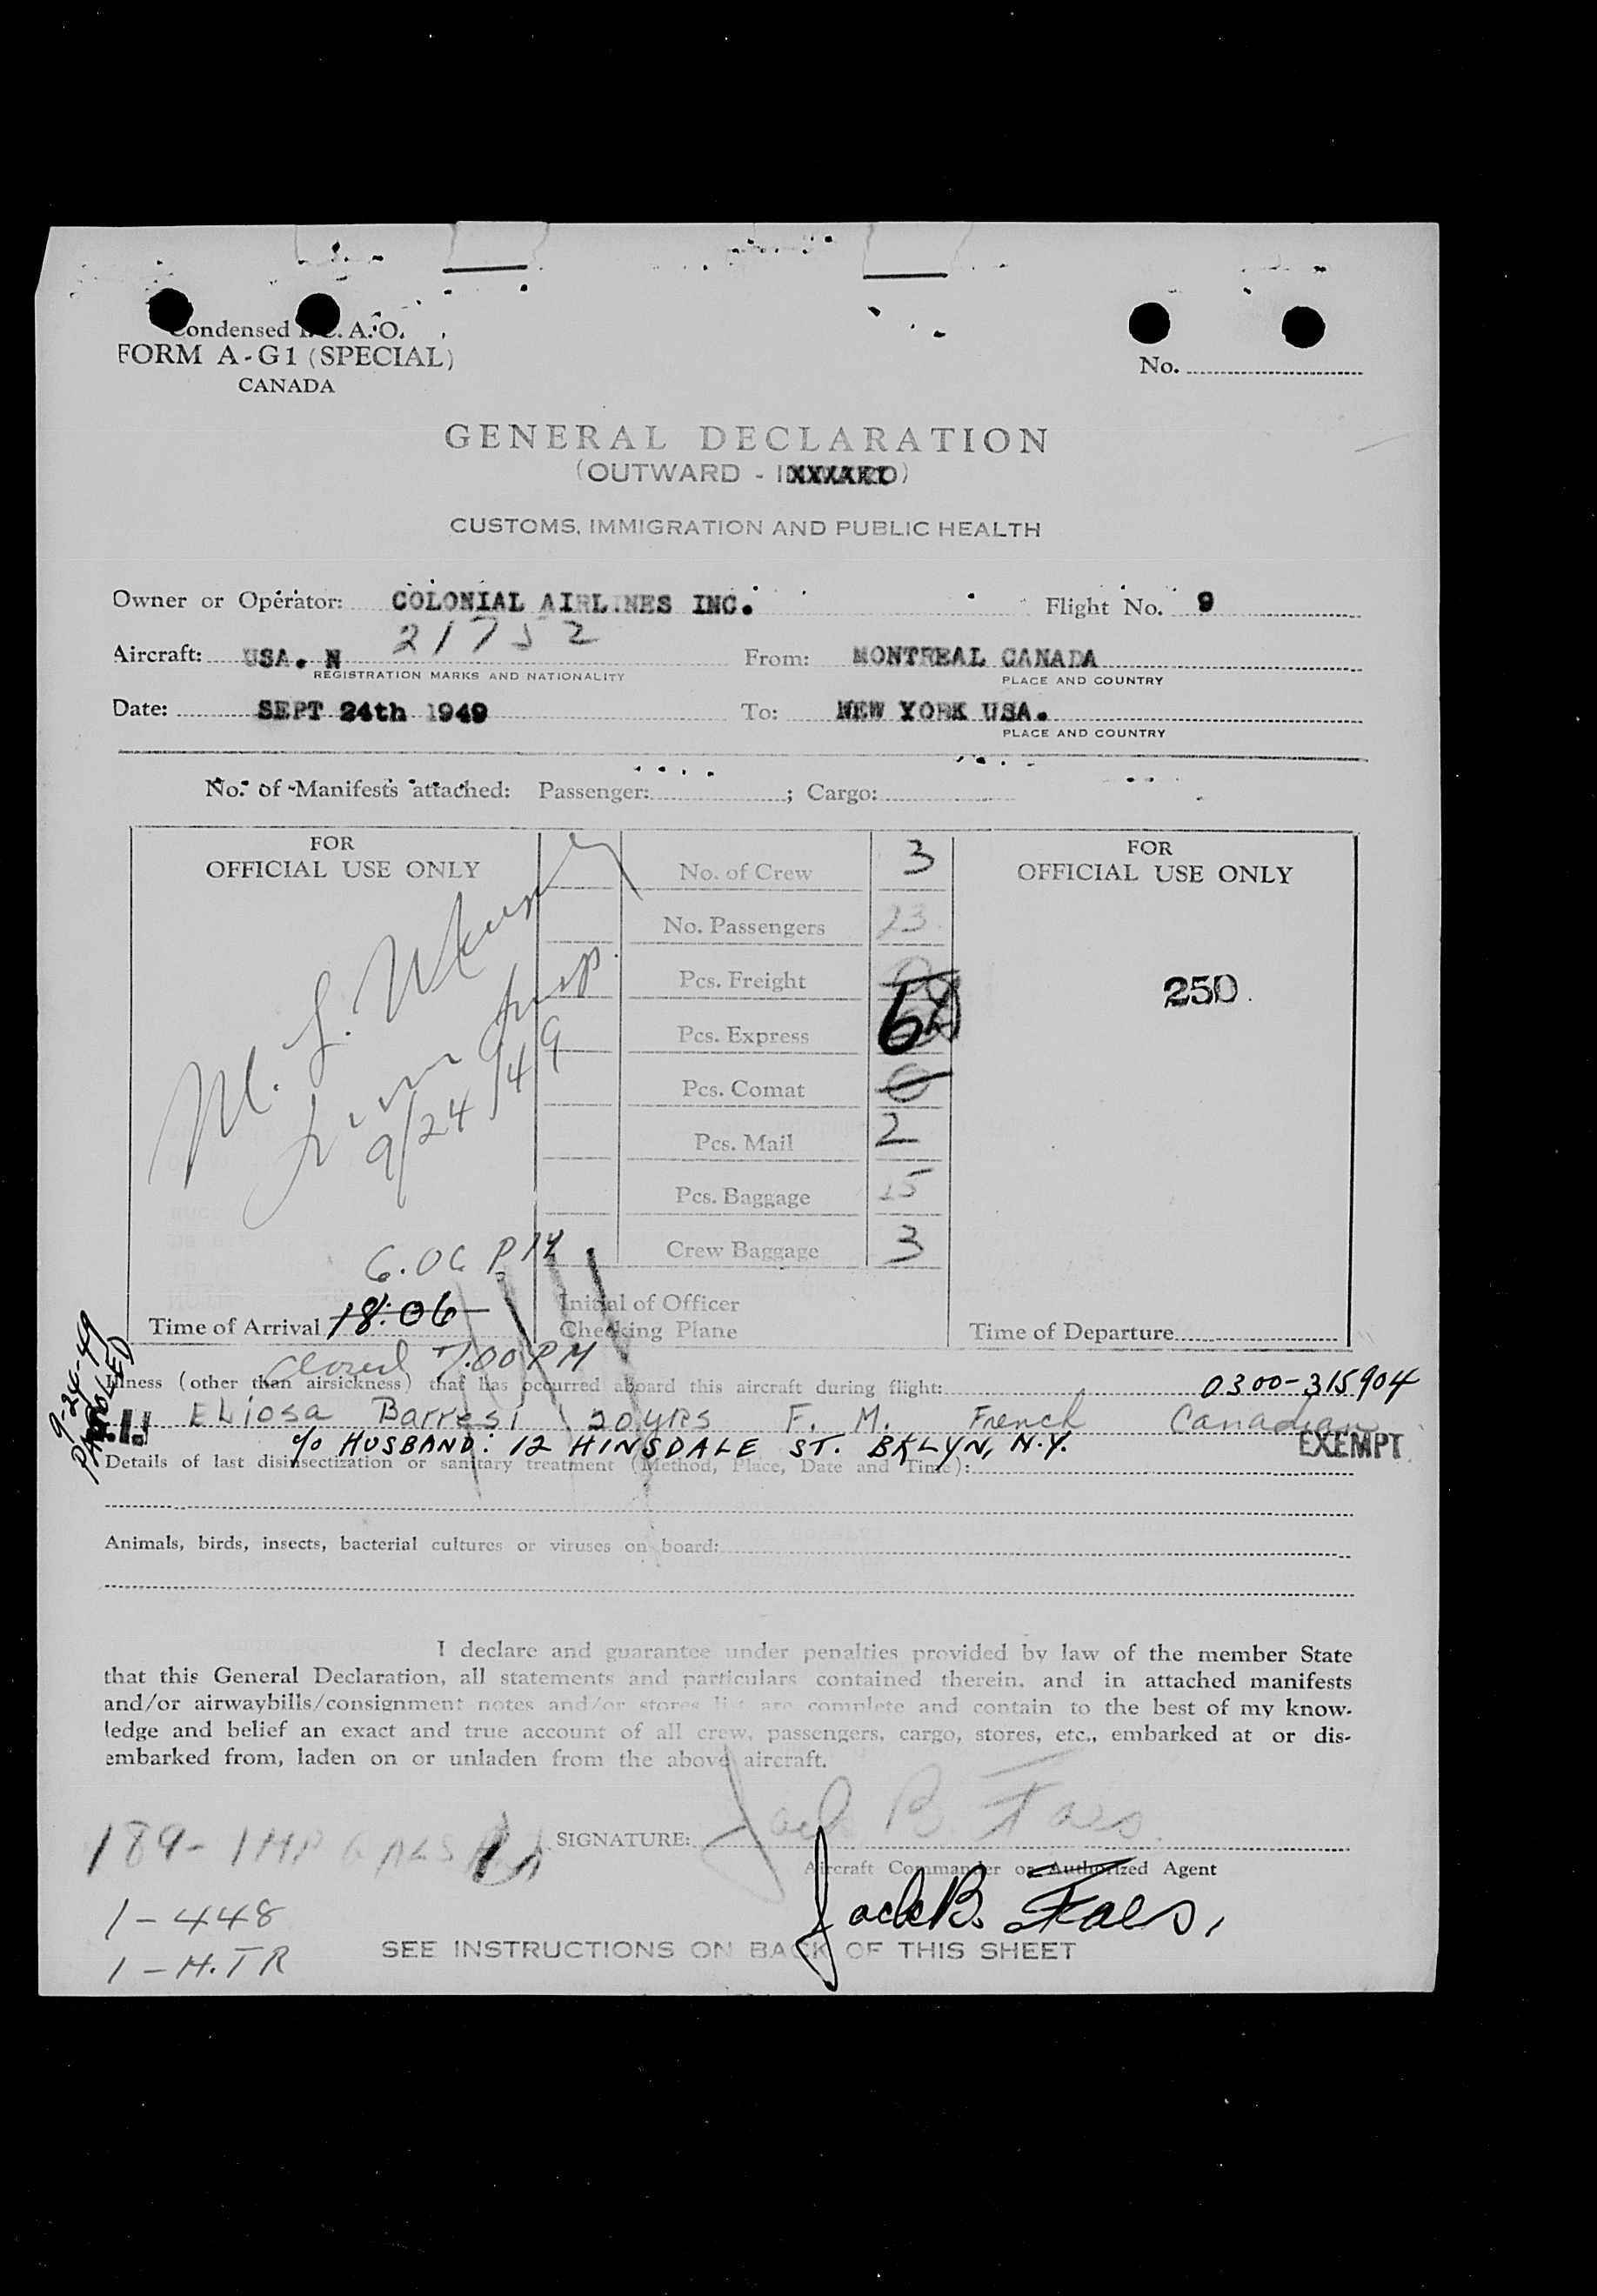 Condensed A.O.
FORM A-G1 (SPECIAL)
CANADA
No.
GENERAL DECLARATION
(OUTWARD -
CUSTOMS, IMMIGRATION AND PUBLIC HEALTH
Owner or Operator: COLONIAL AIRLINES INC. Flight No. 9
Aircraft: USA. N 21752 From: MONTREAL CANADA
REGISTRATION MARKS AND NATIONALITY PLACE AND COUNTRY
Date: SEPT 24th 1949 To: NEW YORK USA.
PLACE AND COUNTRY
No. of Manifests attached: Passenger: ; Cargo:
FOR
OFFICIAL USE ONLY
M. L.
Imm Insp.
9/24/49
6.06 PM
Time of Arrival 18:06
closed 7.00 PM
No. of Crew 3
No. Passengers
Pcs. Freight
Pcs. Express
Pcs. Comat 0
Pcs. Mail 2
Pcs. Baggage 15
Crew Baggage 3
Initial of Officer
Checking Plane
FOR
OFFICIAL USE ONLY
250
Time of Departure
9-24-49
PAROLED
Illness (other than airsickness) that has occurred aboard this aircraft during flight: 0300-315904
Eliosa Barresi 20 yrs F. M. French Canadian
c/o HUSBAND: 12 HINSDALE ST. BKLYN, N.Y. EXEMPT
Details of last disinsectization or sanitary treatment (Method, Place, Date and Time):
Animals, birds, insects, bacterial cultures or viruses on board:
I declare and guarantee under penalties provided by law of the member State
that this General Declaration, all statements and particulars contained therein, and in attached manifests
and/or airwaybills/consignment notes and/or stores list are complete and contain to the best of my know-
ledge and belief an exact and true account of all crew, passengers, cargo, stores, etc., embarked at or dis-
embarked from, laden on or unladen from the above aircraft.
SIGNATURE: Jack B. Faes
Aircraft Commander or Authorized Agent
Jack B. Faes.
189- 1 MP GALS
1-448
1-H.TR
SEE INSTRUCTIONS ON BACK OF THIS SHEET